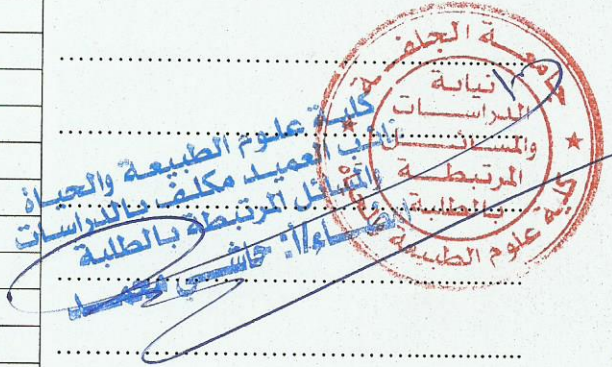 جامعة الجلفة
نيابة
الدراسات
والمسائل
المرتبطة
بالطلبة
كلية علوم الطبيعة
كلية علوم الطبيعة والحياة
نائب العميد مكلف بالدراسات
والمسائل المرتبطة بالطلبة